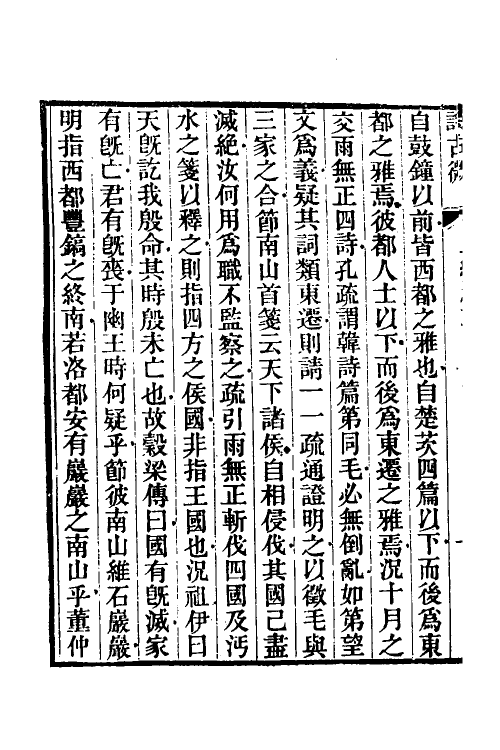 詩古微
自鼓鐘以前皆西都之雅也自楚茨四篇以下而後爲東
都之雅焉彼都人士以下而後爲東遷之雅焉況十月之
交雨無正四詩孔疏謂韓詩篇第同毛必無倒亂如第望
文爲義疑其詞類東遷則請一一疏通證明之以徵毛與
三家之合節南山首箋云天下諸侯自相侵伐其國已盡
滅絶汝何用爲職不監察之疏引雨無正斬伐四國及沔
水之箋以釋之則指四方之侯國非指王國也況祖伊曰
天旣訖我殷命其時殷未亡也故穀梁傳曰國有旣滅家
有旣亡君有旣喪于幽王時何疑乎節彼南山維石巖巖
明指西都豐鎬之終南若洛都安有巖巖之南山乎董仲